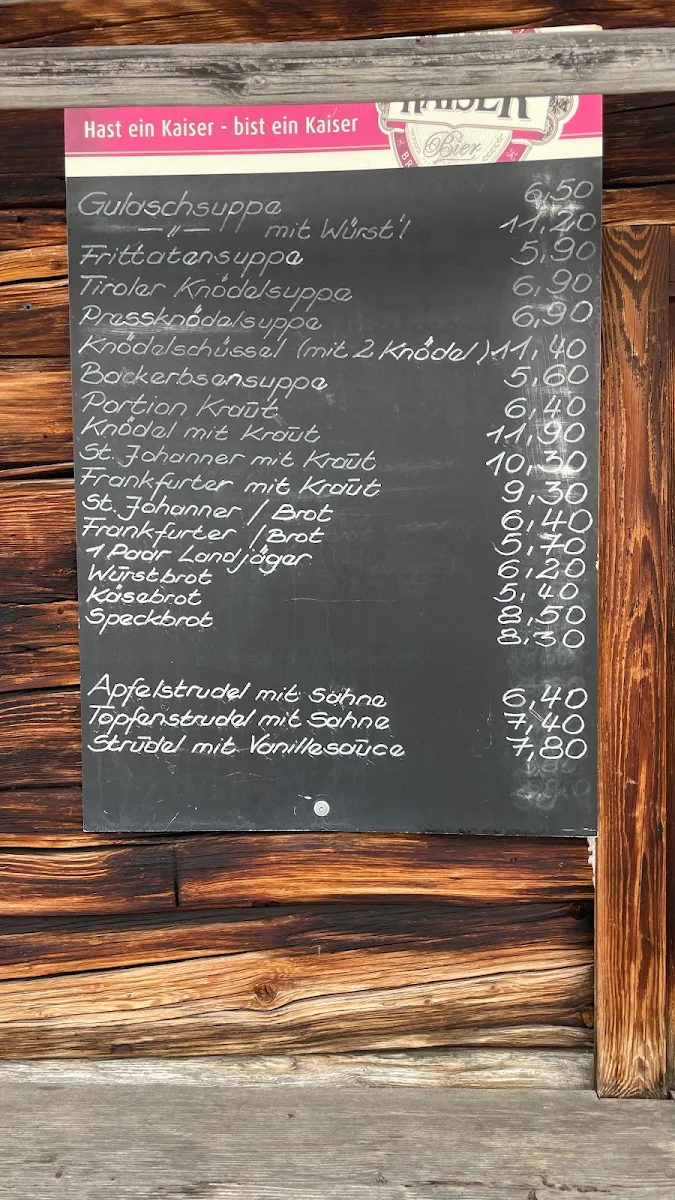 Hast ein Kaiser - bist ein Kaiser
KAISER
Bier
Gulaschsuppe 6,50
—〃— mit Würst'l 11,20
Frittatensuppe 5,90
Tiroler Knödelsuppe 6,90
Pressknödelsuppe 6,90
Knödelschüssel (mit 2 Knödel) 11,40
Backerbsensuppe 5,60
Portion Kraut 6,40
Knödel mit Kraut 11,90
St. Johanner mit Kraut 10,30
Frankfurter mit Kraut 9,30
St. Johanner / Brot 6,40
Frankfurter / Brot 5,70
1 Paar Landjäger 6,20
Wurstbrot 5,40
Käsebrot 8,50
Speckbrot 8,30
Apfelstrudel mit Sahne 6,40
Topfenstrudel mit Sahne 7,40
Strudel mit Vanillesauce 7,80